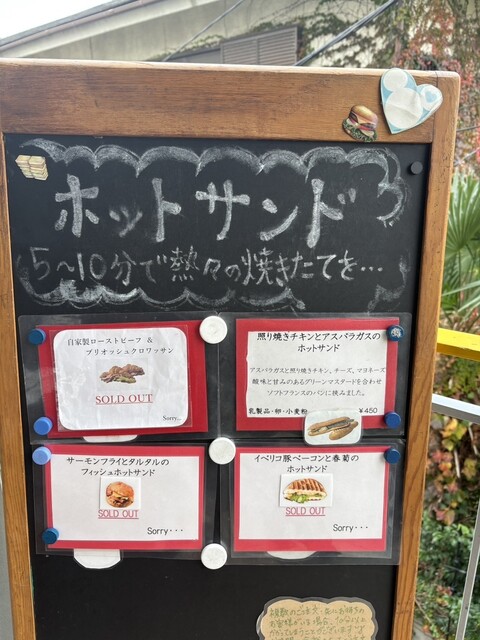 ホットサンド
5〜10分で熱々の焼きたてを…
自家製ローストビーフ &
ブリオッシュクロワッサン
SOLD OUT
Sorry...
照り焼きチキンとアスパラガスの
ホットサンド
アスパラガスと照り焼きチキン、チーズ、マヨネーズ
酸味と甘みのあるグリーンマスタードを合わせ
ソフトフランスのパンに挟みました。
乳製品・卵・小麦粉
¥450
サーモンフライとタルタルの
フィッシュホットサンド
SOLD OUT
Sorry・・・
イベリコ豚ベーコンと春菊の
ホットサンド
SOLD OUT
Sorry・・・
複数のご注文・先にお待ちの
お客様がいる場合、10分以上